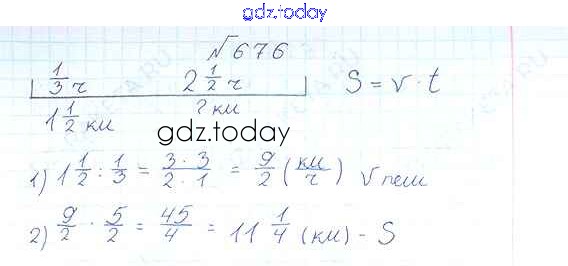 gdz.today
№676
1/3 ч 2 1/2 ч S = v · t
1 1/2 км ? км
gdz.today
1) 1 1/2 : 1/3 = 3 · 3 / 2 · 1 = 9/2 (км/ч) v пеш
2) 9/2 · 5/2 = 45/4 = 11 1/4 (км) - S